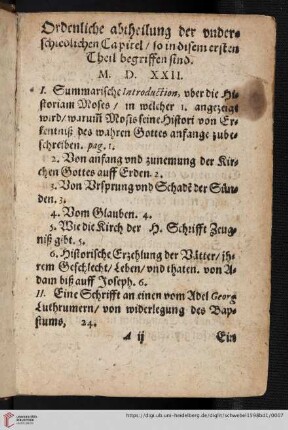 Ordenliche abtheilung der vnder-
schiedlichen Capitel / so in disem ersten
Theil begriffen sind.
M. D. XXII.
I. Summarische Introduction, vber die Hi-
storiam Moses / in welcher 1. angezeigt
wird / warumb Mosis seine Histori von Er-
kentniß des wahren Gottes anfange zube-
schreiben. pag. 1.
2. Von anfang vnd zunemung der Kir-
chen Gottes auff Erden. 2.
3. Von Vrsprung vnd Schadē der Sün-
den. 3.
4. Vom Glauben. 4.
5. Wie die Kirch der H. Schrifft Zeug-
niß gibt. 5.
6. Historische Erzehlung der Vätter / jh-
rem Geschlecht / Leben / vnd thaten. von A-
dam biß auff Joseph. 6.
II. Eine Schrifft an einen vom Adel Georg
Luthrumern / von widerlegung des Bap-
stums, 24.
A ij Ein
UNIVERSITÄTS-
BIBLIOTHEK
HEIDELBERG